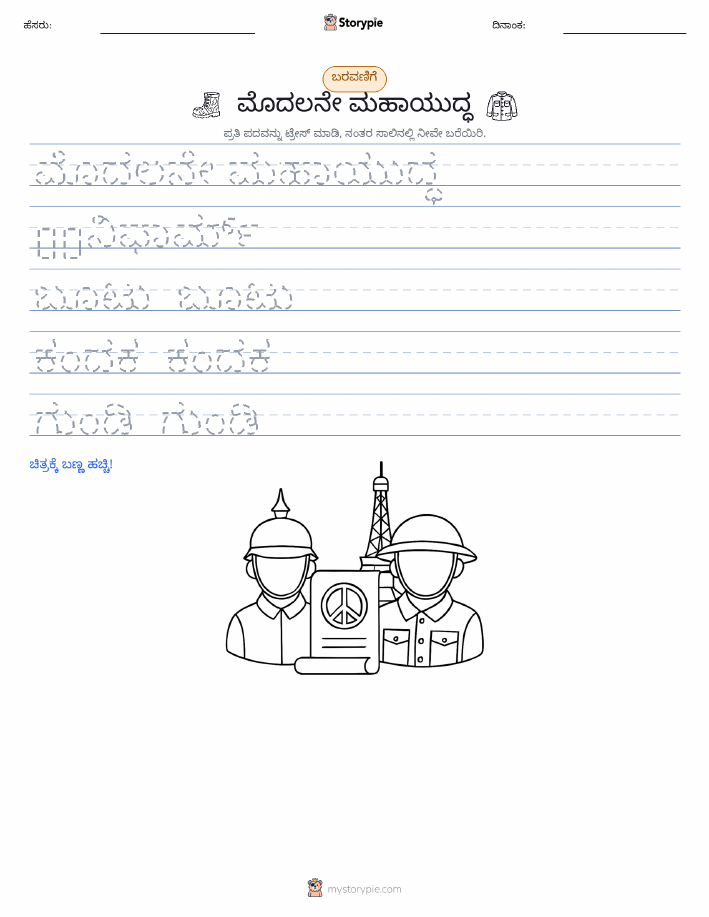 ಹೆಸರು:
Storypie
ದಿನಾಂಕ:
ಬರವಣಿಗೆ
ಮೊದಲನೇ ಮಹಾಯುದ್ಧ
ಪ್ರತಿ ಪದವನ್ನು ಟ್ರೇಸ್ ಮಾಡಿ, ನಂತರ ಸಾಲಿನಲ್ಲಿ ನೀವೇ ಬರೆಯಿರಿ.
ಮೊದಲನೇ ಮಹಾಯುದ್ಧ
ಬೂಟು ಬೂಟು
ಕಂದಕ ಕಂದಕ
ಗುಂಡಿ ಗುಂಡಿ
ಚಿತ್ರಕ್ಕೆ ಬಣ್ಣ ಹಚ್ಚಿ!
mystorypie.com